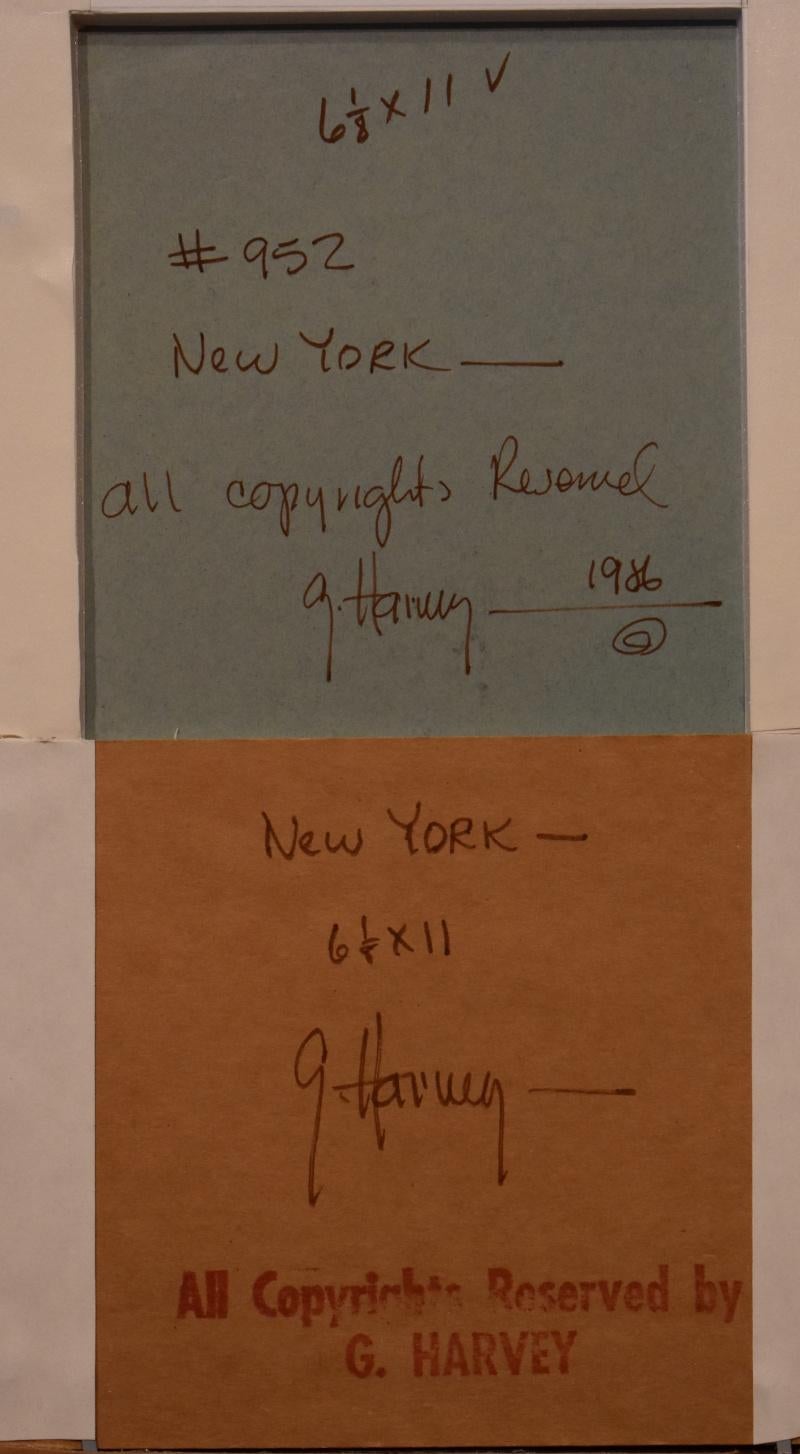 6 1/8 x 11 ✓
# 952
New YORK —
all copyrights Reserved
G. Harvey — 1986
©
New YORK —
6 1/8 x 11
G. Harvey —
All Copyrights Reserved by
G. HARVEY